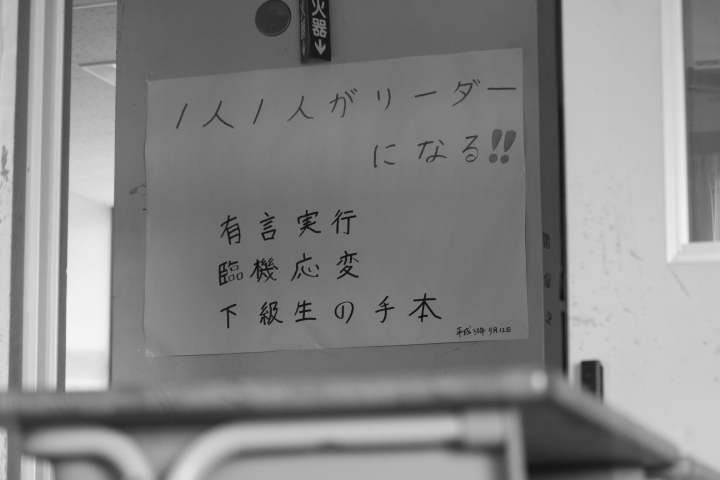 火器
1人1人がリーダー
になる!!
有言実行
臨機応変
下級生の手本
平成30年9月12日